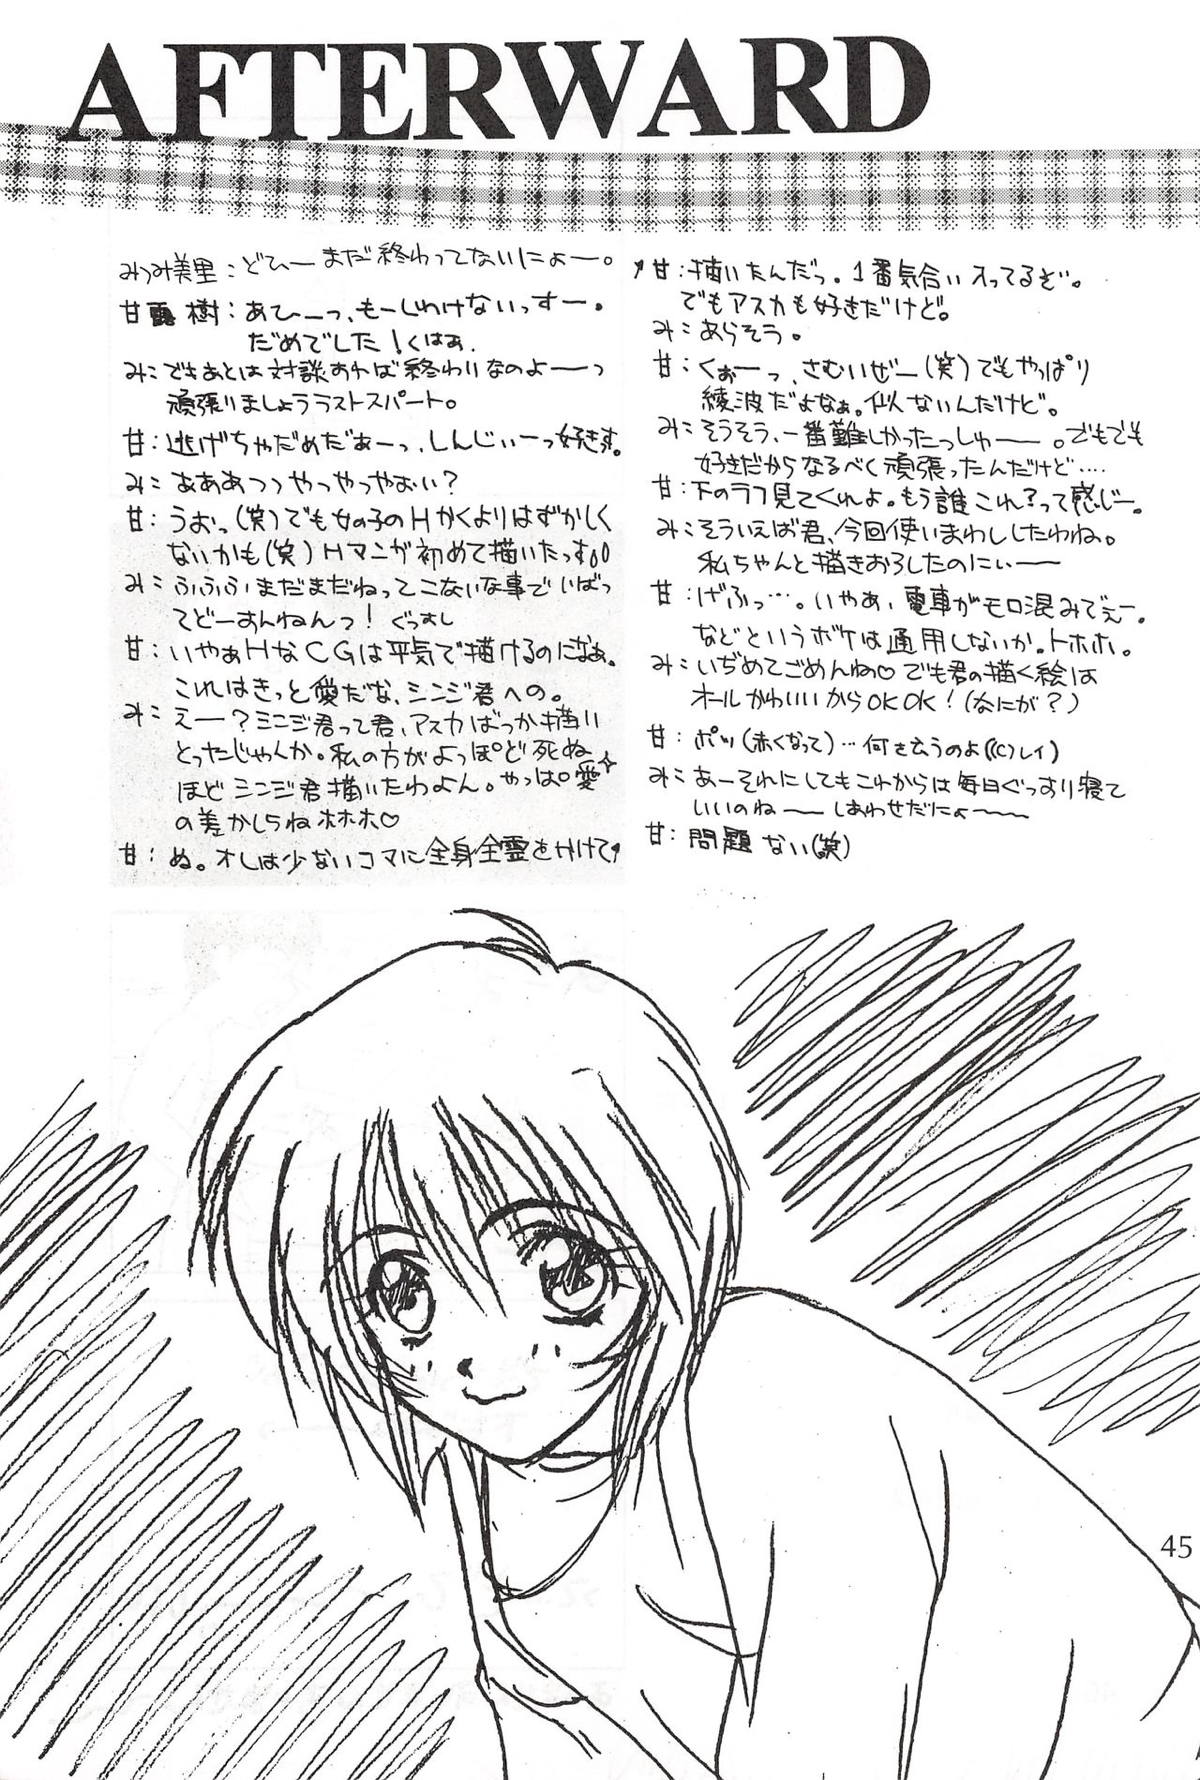 AFTERWARD
みつみ美里：どひーまだ終わってないにょー。
甘露 樹：あひーっ、もーしわけないっすー。
だめでした！くはぁ.
み：でもあとは対談おわれば終わりなのよーっ
頑張りましょうラストスパート。
甘：逃げちゃだめだぁーっ、しんじぃーっ好きす。
み：ああああっっやっやっやおい？
甘：うおっ(笑)でも女の子のHかくよりはずかしく
ないかも(笑)Hマンガ初めて描いたっす。
み：ふふふまだまだねってこないな事でいばっ
てどーすんねんっ！ぐっすし
甘：いやぁHなCGは平気で描けるのになぁ。
これはきっと愛だな、シンジ君への。
み：えー？シンジ君って君、アスカばっか描い
とったじゃんか。私の方がよっぽど死ぬ
ほどシンジ君描いたわよん。やっぱ愛
の差かしらねホホホ♡
甘：ぬ。オレは少ないコマに全身全霊をかけて
甘：描いたんだっ。1番気合い入ってるぞ。
でもアスカも好きだけど。
み：あらそう。
甘：くぉーっ、さむいぜー(笑)でもやっぱり
綾波だよなぁ。似ないんだけど。
み：そうそう、一番難しかったっしゅー。でもでも
好きだからなるべく頑張ったんだけど‥‥
甘：下のラフ見てくれよ。もう誰これ？って感じー。
み：そういえば君、今回使いまわししたわね。
私ちゃんと描きおろしたのにぃー
甘：げふっ…。いやぁ、電車がモロ混みでぇー。
などというボケは通用しないか。トホホ。
み：いぢめてごめんね♡でも君の描く絵は
オールかわいいからOKOK！(なにが？)
甘：ポッ(赤くなって)…何を云うのよ((C)レイ)
み：あーそれにしてもこれからは毎日ぐっすり寝て
いいのねー しあわせだにょー
甘：問題ない(笑)
45